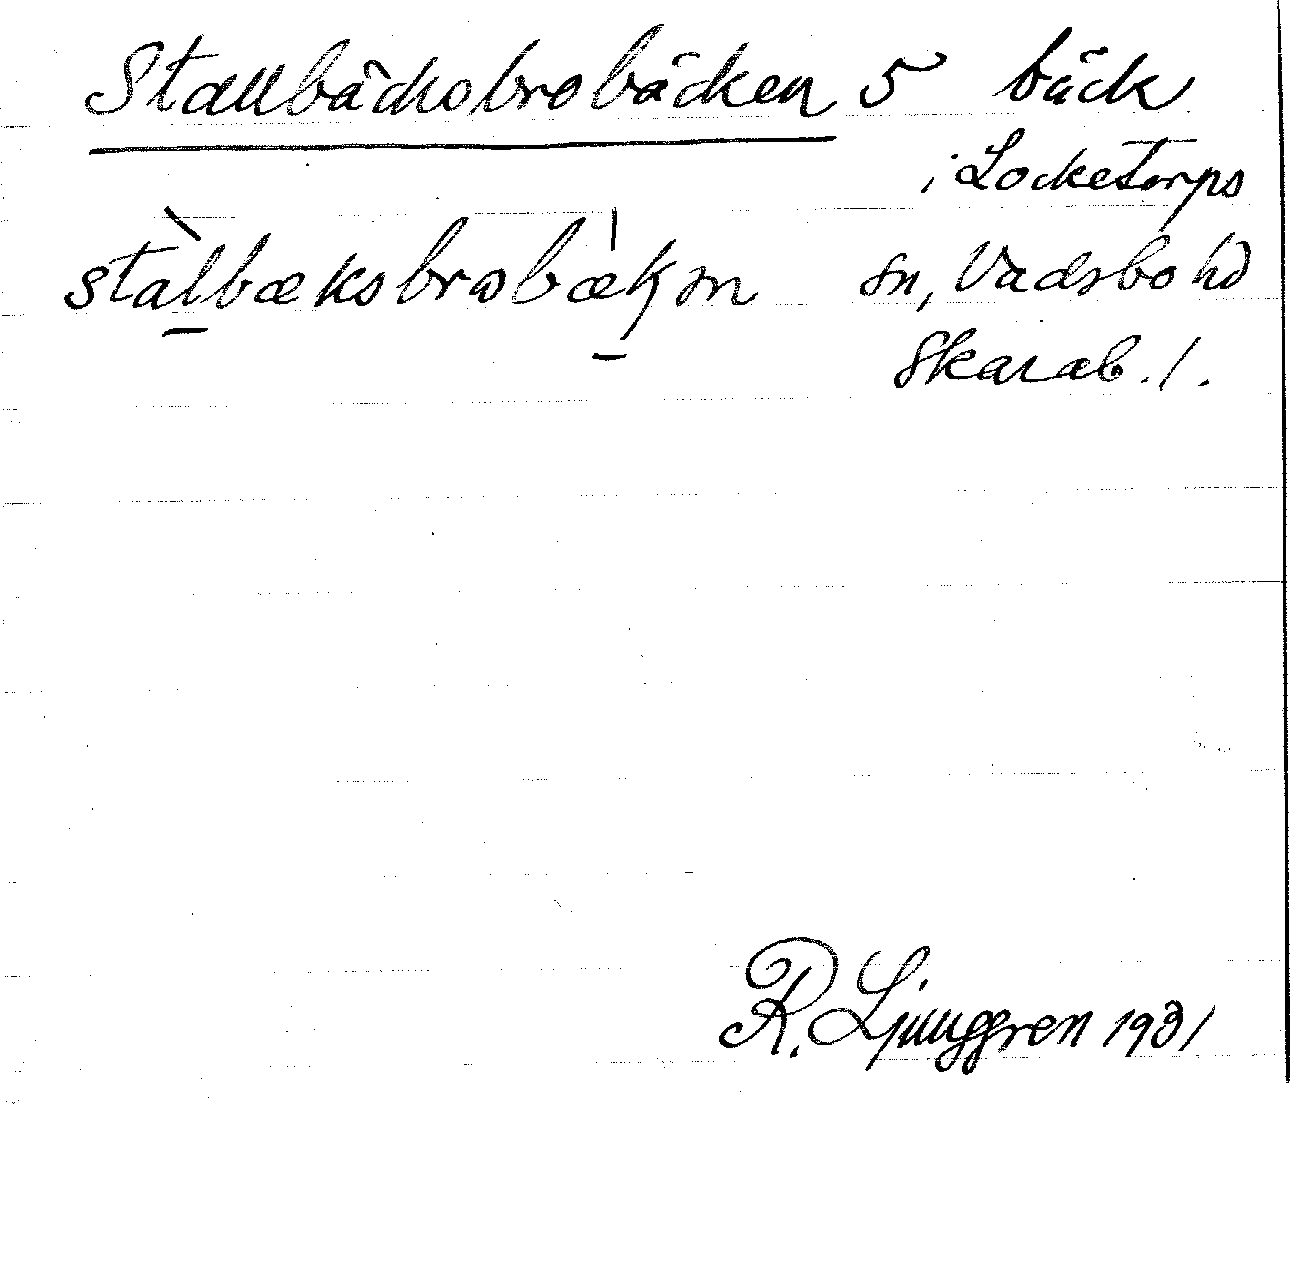 Stallbäcksbrobäcken 5 bäck
i Locketorps
stàlbæksbrobækən sn, Vadsbo hd
Skarab. l.
R. Ljunggren 1931